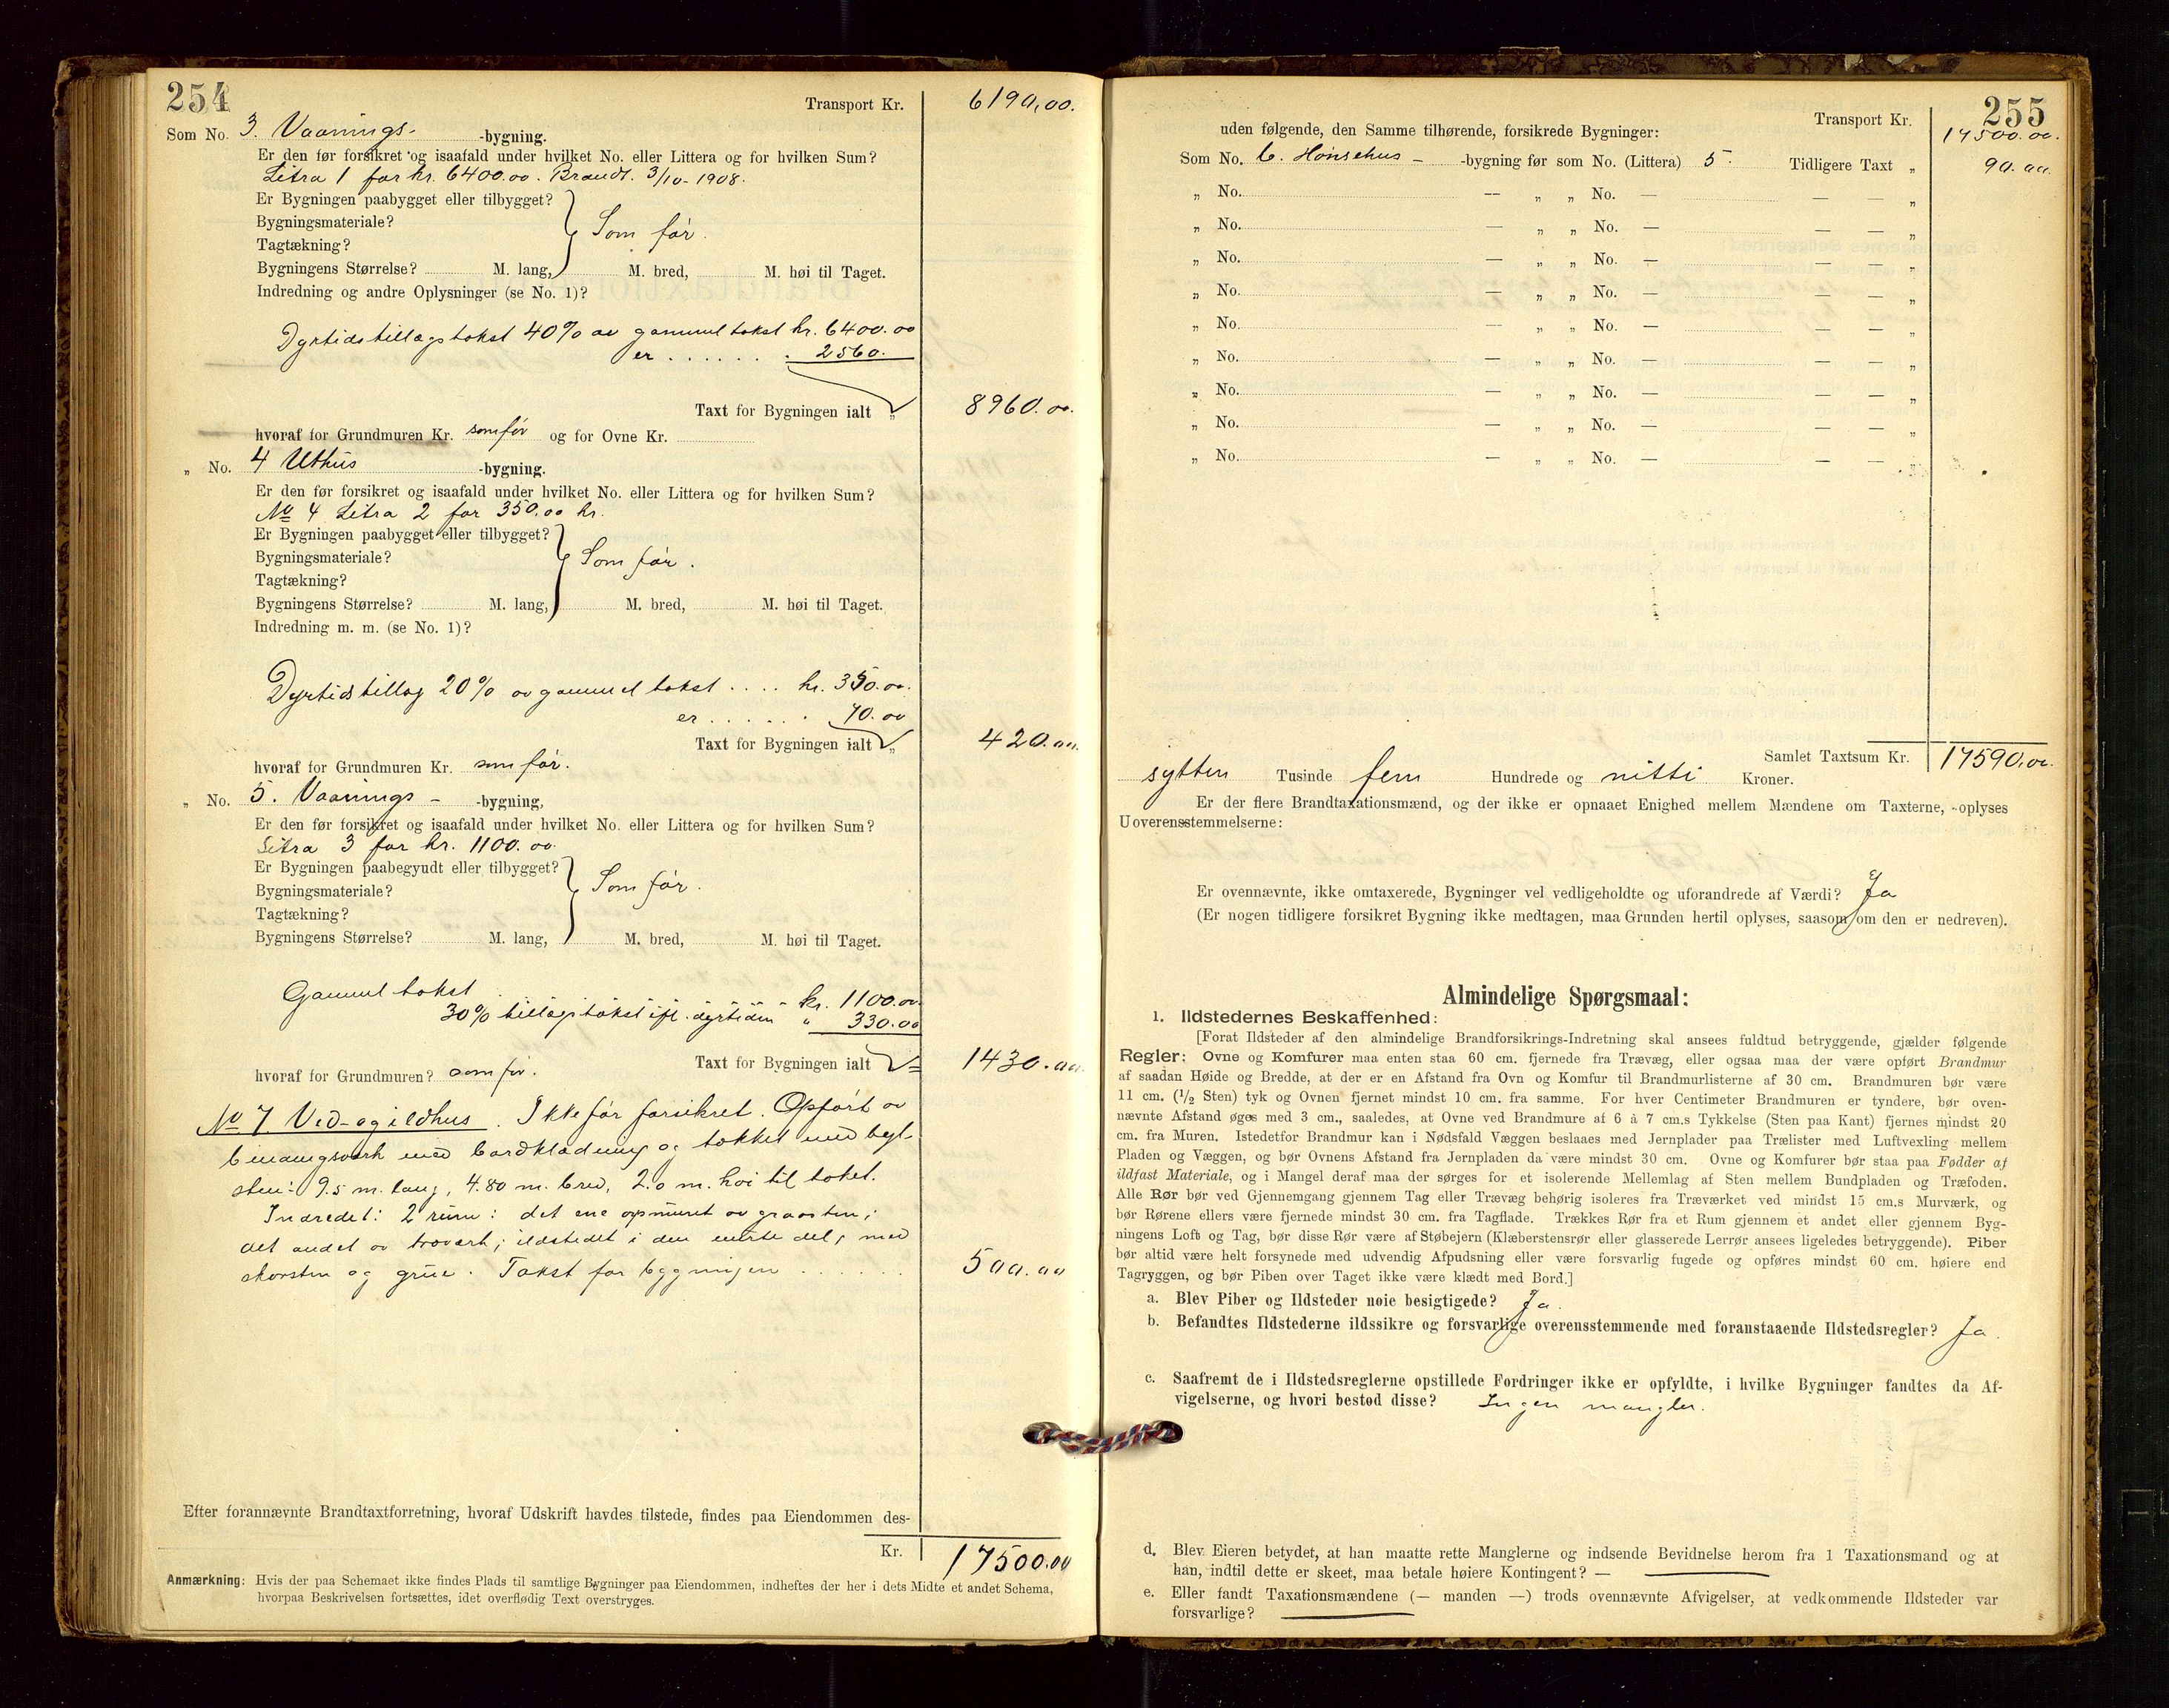 254
Transport Kr. 6190,00.
Som No. 3. Vaanings- -bygning.
Er den før forsikret og isaafald under hvilket No. eller Littera og for hvilken Sum?
Litra 1 for kr. 6400.00. Brandt. 3/10-1908.
Er Bygningen paabygget eller tilbygget?
Bygningsmateriale? Som før.
Tagtækning?
Bygningens Størrelse? M. lang, M. bred, M. høi til Taget.
Indredning og andre Oplysninger (se No. 1)?
Dyrtidstillægstakst 40% av gammel takst kr. 6400.00
er . . . . . . . 2560.
Taxt for Bygningen ialt „ 8960.00.
hvoraf for Grundmuren Kr. som før og for Ovne Kr.
„ No. 4 Uthus -bygning.
Er den før forsikret og isaafald under hvilket No. eller Littera og for hvilken Sum?
No 4 Litra 2 for 350,00 kr.
Er Bygningen paabygget eller tilbygget?
Bygningsmateriale? Som før.
Tagtækning?
Bygningens Størrelse? M. lang, M. bred, M. høi til Taget.
Indredning m. m. (se No. 1)?
Dyrtidstillæg 20% av gammel takst . . . . kr. 350.00.
er . . . . . . 70.00
Taxt for Bygningen ialt „ 420.00.
hvoraf for Grundmuren Kr. som før.
„ No. 5. Vaanings- -bygning,
Er den før forsikret og isaafald under hvilket No. eller Littera og for hvilken Sum?
Litra 3 for kr. 1100.00.
Er Bygningen paabegyndt eller tilbygget?
Bygningsmateriale? Som før.
Tagtækning?
Bygningens Størrelse? M. lang, M. bred, M. høi til Taget.
Gammel takst - kr. 1100.00
30% tillægstakst ifl. dyrtiden „ 330.00
Taxt for Bygningen ialt 1430.00
hvoraf for Grundmuren? som før.
No 7 Ved- og ildhus. Ikke før forsikret. Opført av
bindingsverk med bordklædning og tækket med hegl-
sten: 9.5 m. lang, 4.80 m. bred, 2.0 m. høi til taket.
Indredet: 2 rum: det ene opmuret av graasten;
det andet av træverk; ildstedet i den murte del, med
skorsten og grue. Takst for bygningen . . . . . . 500.00
Efter forannævnte Brandtaxtforretning, hvoraf Udskrift havdes tilstede, findes paa Eiendommen des-
Kr. 17500.00
Anmærkning: Hvis der paa Schemaet ikke findes Plads til samtlige Bygninger paa Eiendommen, indheftes der her i dets Midte et andet Schema,
hvorpaa Beskrivelsen fortsættes, idet overflødig Text overstryges.
255
Transport Kr. 17500.00.
uden følgende, den Samme tilhørende, forsikrede Bygninger:
Som No. 6. Hønsehus - -bygning før som No. (Littera) 5. Tidligere Taxt „ 90.00.
„ No. — „ „ No. — — — „
„ No. — „ „ No. — — — „
„ No. — „ „ No. — — — „
„ No. — „ „ No. — — — „
„ No. — „ „ No. — — — „
„ No. — „ „ No. — — — „
„ No. — „ „ No. — — — „
„ No. — „ „ No. — — — „
„ No. — „ „ No. — — — „
Samlet Taxtsum Kr. 17590,00.
sytten Tusinde fem Hundrede og nitti Kroner.
Er der flere Brandtaxationsmænd, og der ikke er opnaaet Enighed mellem Mændene om Taxterne, oplyses
Uoverensstemmelserne:
Er ovennævnte, ikke omtaxerede, Bygninger vel vedligeholdte og uforandrede af Værdi? Ja
(Er nogen tidligere forsikret Bygning ikke medtagen, maa Grunden hertil oplyses, saasom om den er nedreven).
Almindelige Spørgsmaal:
1. Ildstedernes Beskaffenhed:
[Forat Ildsteder af den almindelige Brandforsikrings-Indretning skal ansees fuldtud betryggende, gjælder følgende
Regler: Ovne og Komfurer maa enten staa 60 cm. fjernede fra Trævæg, eller ogsaa maa der være opført Brandmur
af saadan Høide og Bredde, at der er en Afstand fra Ovn og Komfur til Brandmurlisterne af 30 cm. Brandmuren bør være
11 cm. (1/2 Sten) tyk og Ovnen fjernet mindst 10 cm. fra samme. For hver Centimeter Brandmuren er tyndere, bør oven-
nævnte Afstand øges med 3 cm., saaledes, at Ovne ved Brandmure af 6 à 7 cm.s Tykkelse (Sten paa Kant) fjernes mindst 20
cm. fra Muren. Istedetfor Brandmur kan i Nødsfald Væggen beslaaes med Jernplader paa Trælister med Luftvexling mellem
Pladen og Væggen, og bør Ovnens Afstand fra Jernpladen da være mindst 30 cm. Ovne og Komfurer bør staa paa Fødder af
ildfast Materiale, og i Mangel deraf maa der sørges for et isolerende Mellemlag af Sten mellem Bundpladen og Træfoden.
Alle Rør bør ved Gjennemgang gjennem Tag eller Trævæg behørig isoleres fra Træværket ved mindst 15 cm.s Murværk, og
bør Rørene ellers være fjernede mindst 30 cm. fra Tagflade. Trækkes Rør fra et Rum gjennem et andet eller gjennem Byg-
ningens Loft og Tag, bør disse Rør være af Støbejern (Klæberstensrør eller glasserede Lerrør ansees ligeledes betryggende). Piber
bør altid være helt forsynede med udvendig Afpudsning eller være forsvarlig fugede og opføres mindst 60 cm. høiere end
Tagryggen, og bør Piben over Taget ikke være klædt med Bord.]
a. Blev Piber og Ildsteder nøie besigtigede? Ja.
b. Befandtes Ildstederne ildssikre og forsvarlige overensstemmende med foranstaaende Ildstedsregler? Ja.
c. Saafremt de i Ildstedsreglerne opstillede Fordringer ikke er opfyldte, i hvilke Bygninger fandtes da Af-
vigelserne, og hvori bestod disse? Ingen mangler.
d. Blev Eieren betydet, at han maatte rette Manglerne og indsende Bevidnelse herom fra 1 Taxationsmand og at
han, indtil dette er skeet, maa betale høiere Kontingent? —
e. Eller fandt Taxationsmændene (— manden —) trods ovennævnte Afvigelser, at vedkommende Ildsteder var
forsvarlige?